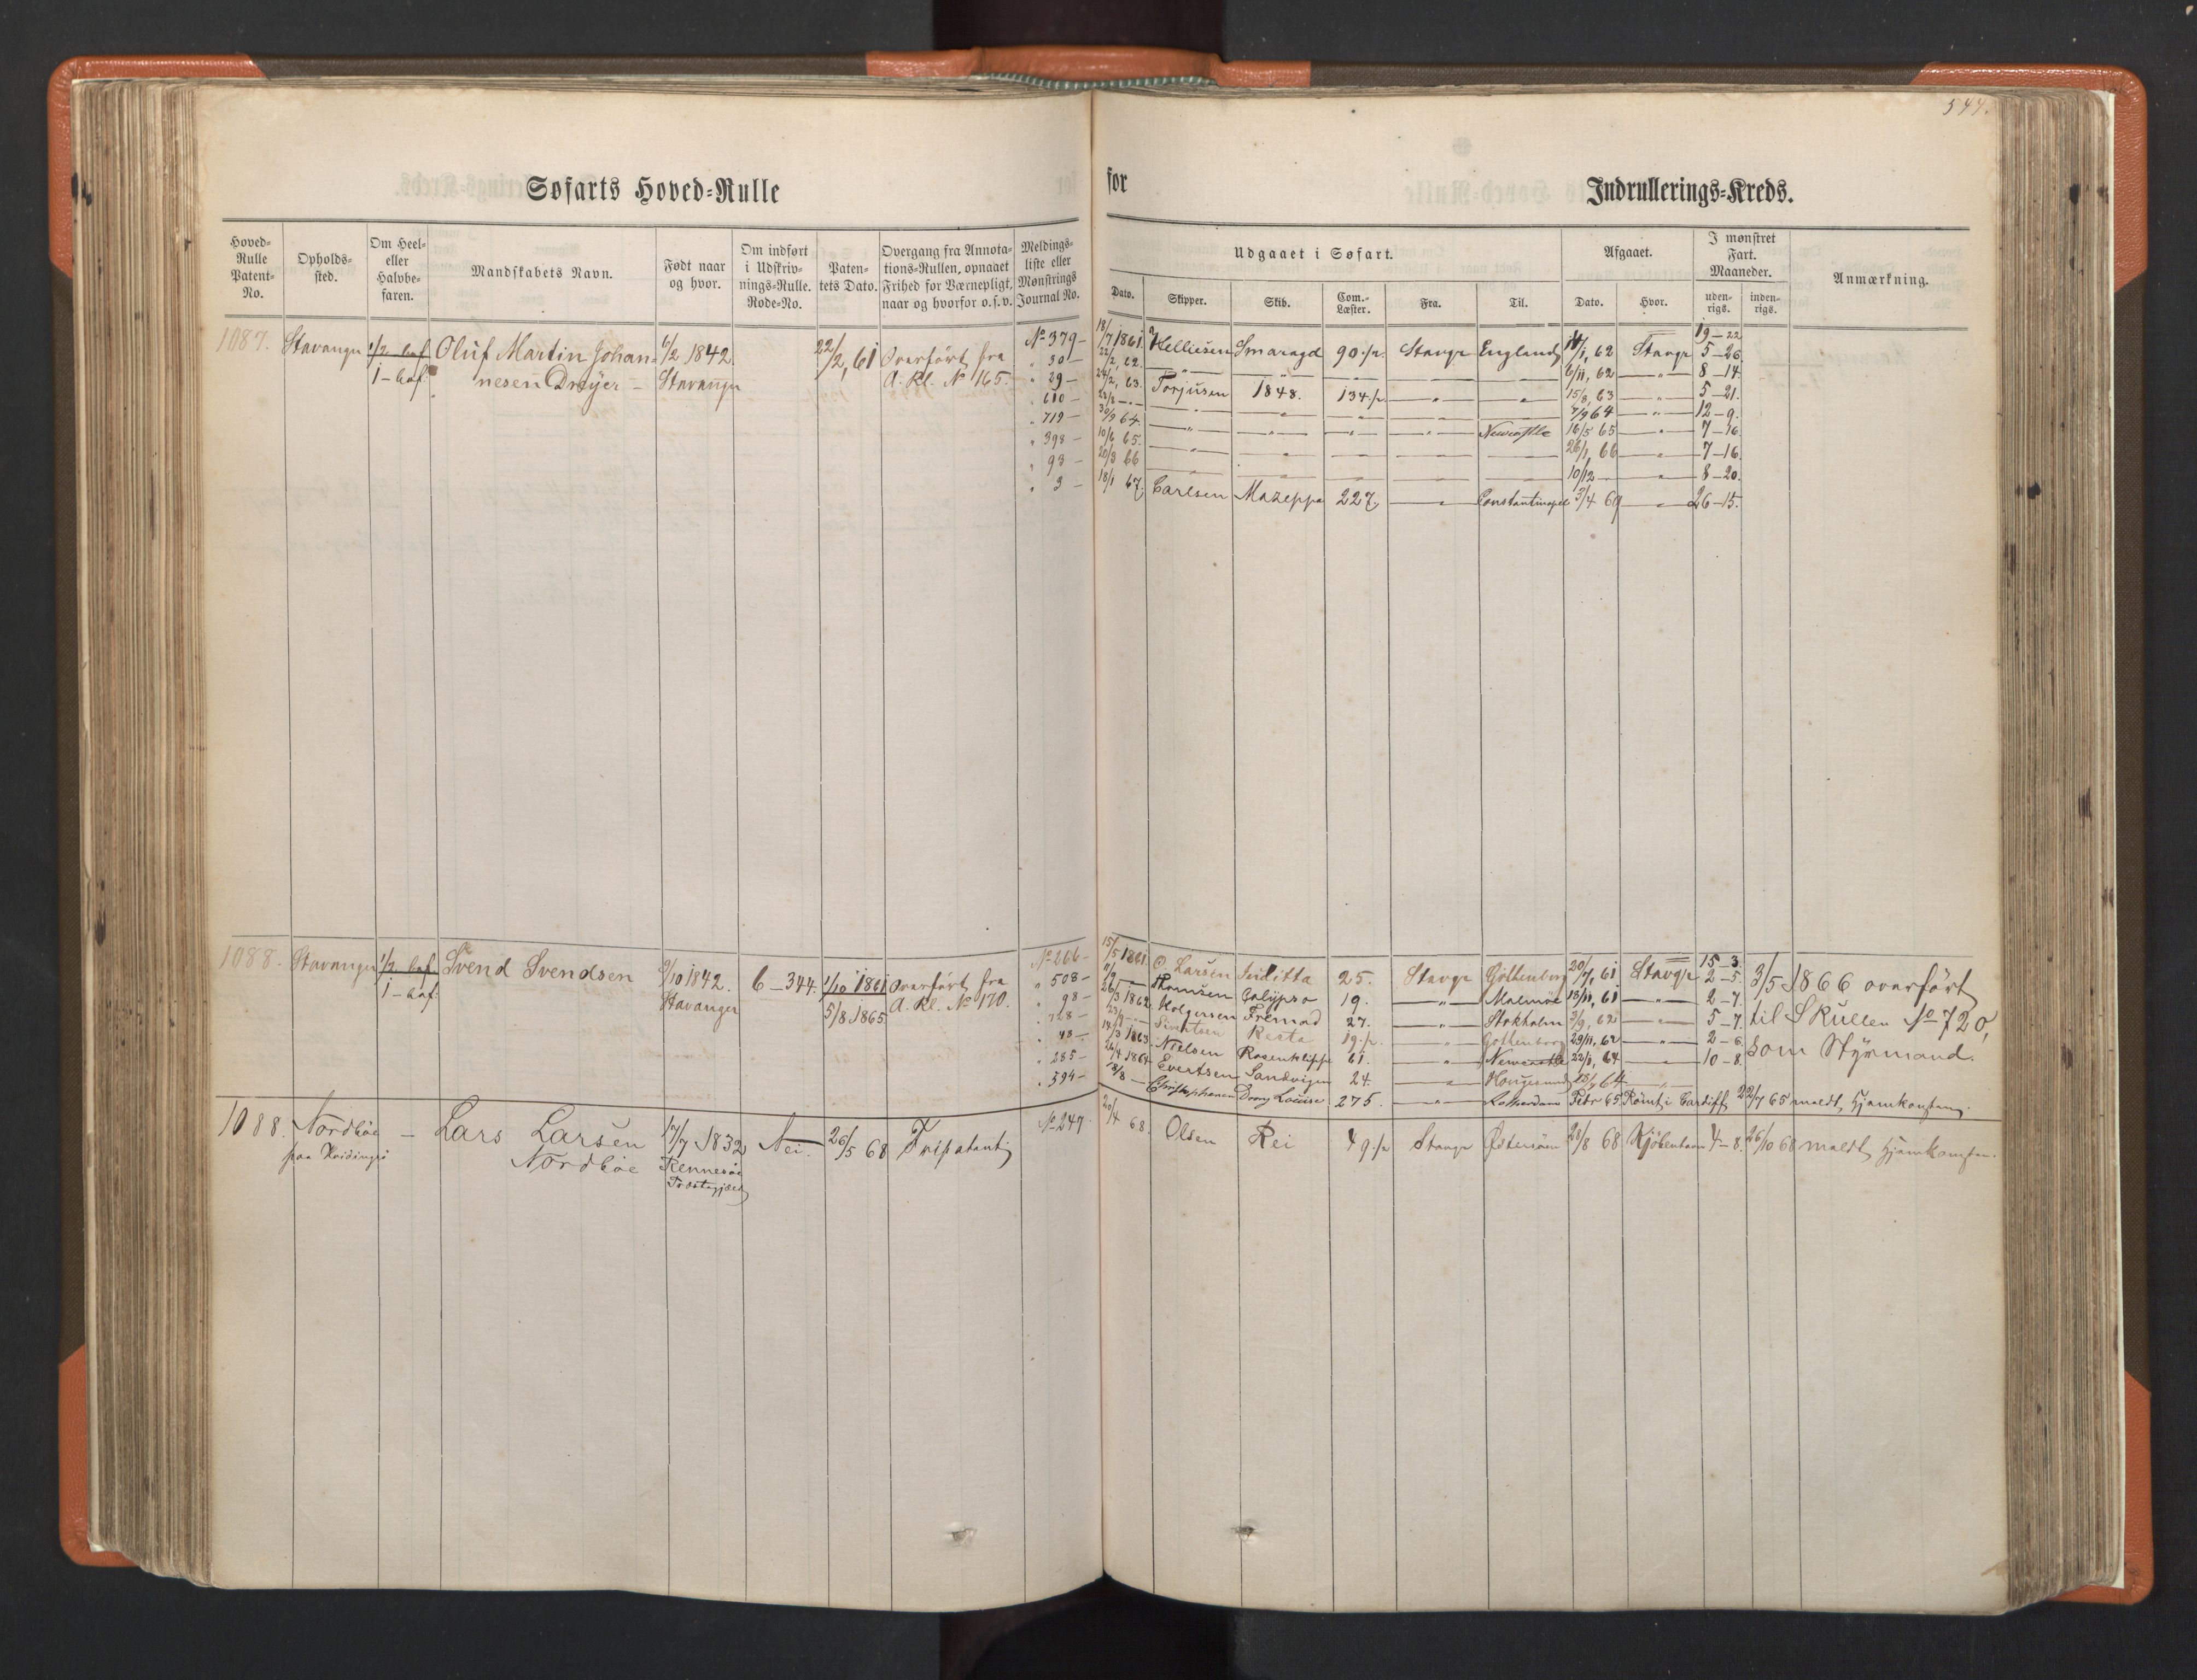 544.
Søfarts Hoved=Rulle
for
Indrullerings=Kreds.
Hoved=Rulle Patent=No.
Opholds=sted.
Om Heel= eller Halvbe=faren.
Mandskabets Navn.
Født naar og hvor.
Om indført i Udskriv=nings=Rulle. Rode=No.
Paten=tets Dato.
Overgang fra Annota=tions=Rullen, opnaaet Frihed for Værnepligt, naar og hvorfor o. s. v.
Meldings=liste eller Mønstrings Journal No.
Udgaaet i Søfart.
Dato.
Skipper.
Skib.
Com.=Læster.
Fra.
Til.
Afgaaet.
Dato.
Hvor.
I mønstret Fart. Maaneder.
uden=rigs.
inden=rigs.
Anmærkning.
1087. Stavanger 1/2 bef. Oluf Martin Johan= 6/2 1842. 22/2, 61 Overført fra No 379 – 18/7 1861. Helliesen Smaragd 90./2. Stavgr England 14/1, 62 Stavgr 5–26
1 – bef. nesen Dreyer – Stavanger A. Rl. No 165. " 30 – 22/2, 62. 6/11, 62 — " — 8–14.
19–22
" 29 – 24/2, 63. Torjusen 1848. 134./2 15/8, 63 " 5–21.
" 610 – 7/9 64 — " — 12–9.
" 719 – 30/9 64. Newcastle 16/5 65 — " — 7–16.
" 398 – 10/6 65. 26/1, 66 — " — 7–16.
" 93 – 20/3 66 10/12 — " 8–20.
" 3 – 18/1 67. Carlsen Mazeppa 227. — " — Constantinopel 3/4 69 — " — 26–15.
1088. Stavanger 1/2 bef. Svend Svendsen 9/10 1842. 6–344. 1/10 1861 Overført fra No 266 – 15/5 1861. O. Larsen Julitta 25. Stavgr Gøttenborg 20/7, 61 Stavgr 2–5.
15–3.
1 – bef. Stavanger 5/8 1865. A. Rl. No 170. " 508 – Thomsen Calypso 19. — " — Malmöe 18/11, 61 — " — 2–7.
" 98 – 26/3 1862 Holgersen Fremad 27. — " — Stokholm 3/9, 62 — " — 5–7.
Resta 19./2. " Gøttenborg 29/11, 62 — " — 2–6.
" 43 – 14/3 1863. Nielsen Rosenklippe 61. " Newcastle 22/1, 64 " 10–8.
" 285 – 26/4 1864 Evertsen Sandvigen 24. Hougesund
" 594 – 18/8 – Christophersen Drong Louise 275. — " — Rotterdam Febr 65 Römt i Cardiff 22/7 65 meldt Hjemkomsten.
3/5 1866 overført
til S Rullen No 720,
som Styrmand.
1088. Nordböe – Lars Larsen 17/7 1832 Nei. 26/5 68 Fripatent No 247 20/4 68. Olsen Rei 49./2 Stavgr Østersöen 28/8 68 Kjöbenhavn 4–8. 26/10 68 meldt Hjemkomsten.
paa Hvidingsö Nordböe Rennesöe
Præstegjæld